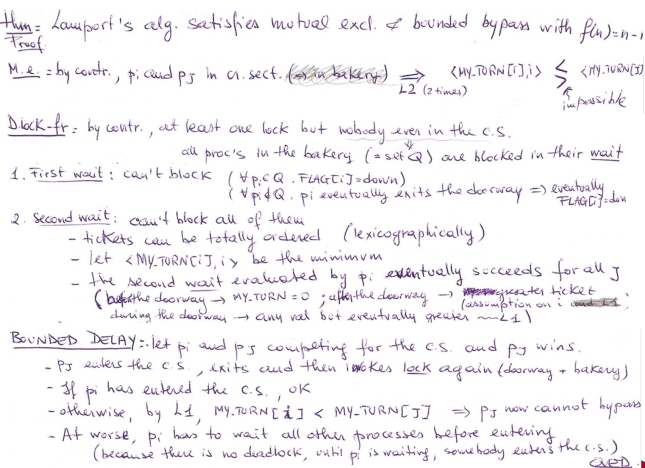 Thm: Lamport's alg. satisfies mutual excl. & bounded bypass with f(n)=n-1
Proof
M.e.: by contr., pi and pj in cr. sect. ⟹ <MY_TURN[i],i> ≶ <MY_TURN[J]
L2 (2 times) impossible
Dlock-fr: by contr., at least one lock but nobody ever in the c.s.
all proc's in the bakery (= set Q) are blocked in their wait
1. First wait: can't block (∀pi∈Q. FLAG[i]=down)
(∀pi∉Q. pi eventually exits the doorway ⟹ eventually FLAG[i]=down
2. Second wait: can't block all of them
- tickets can be totally ordered (lexicographically)
- let <MY_TURN[i],i> be the minimum
- the second wait evaluated by pi eventually succeeds for all J
(before the doorway → MY_TURN=0 ; after the doorway → greater ticket
(assumption on i
during the doorway → any val but eventually greater L1)
BOUNDED DELAY: let pi and pj competing for the c.s. and pj wins.
- Pj enters the c.s., exits and then invokes lock again (doorway + bakery)
- If pi has entered the c.s., OK
- otherwise, by L1, MY_TURN[i] < MY_TURN[J] ⟹ pj now cannot bypass
- At worse, pi has to wait all other processes before entering
(because there is no deadlock, until pi is waiting, somebody enters the c.s.)
QED.